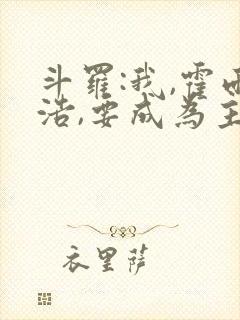 斗羅:我,霍雨
浩,要成為主
衣里萨